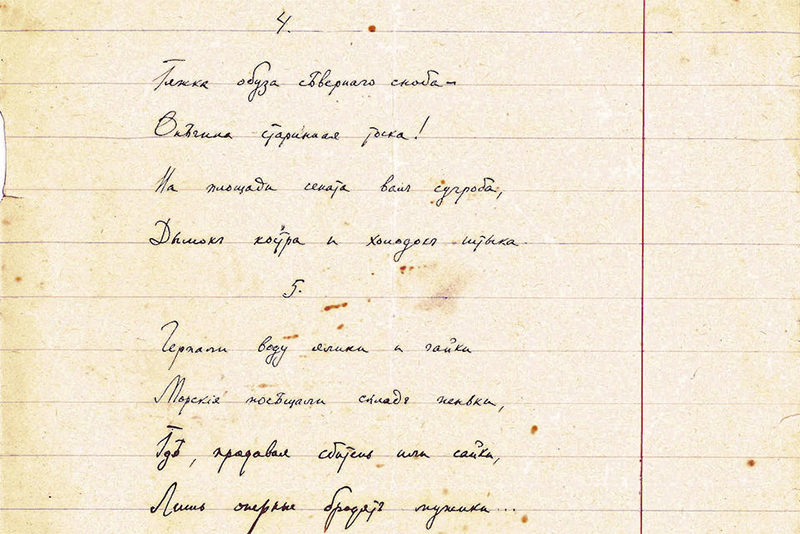 4.
Тяжка обуза сѣвернаго сноба –
Онѣгина старинная тоска!
На площади сената валъ сугроба,
Дымокъ костра и холодокъ штыка.
5.
Черпали воду ялики и чайки
Морскія посѣщали складъ пеньки,
Гдѣ, продавая сбитень или сайки,
Лишь оперные бродятъ мужики...